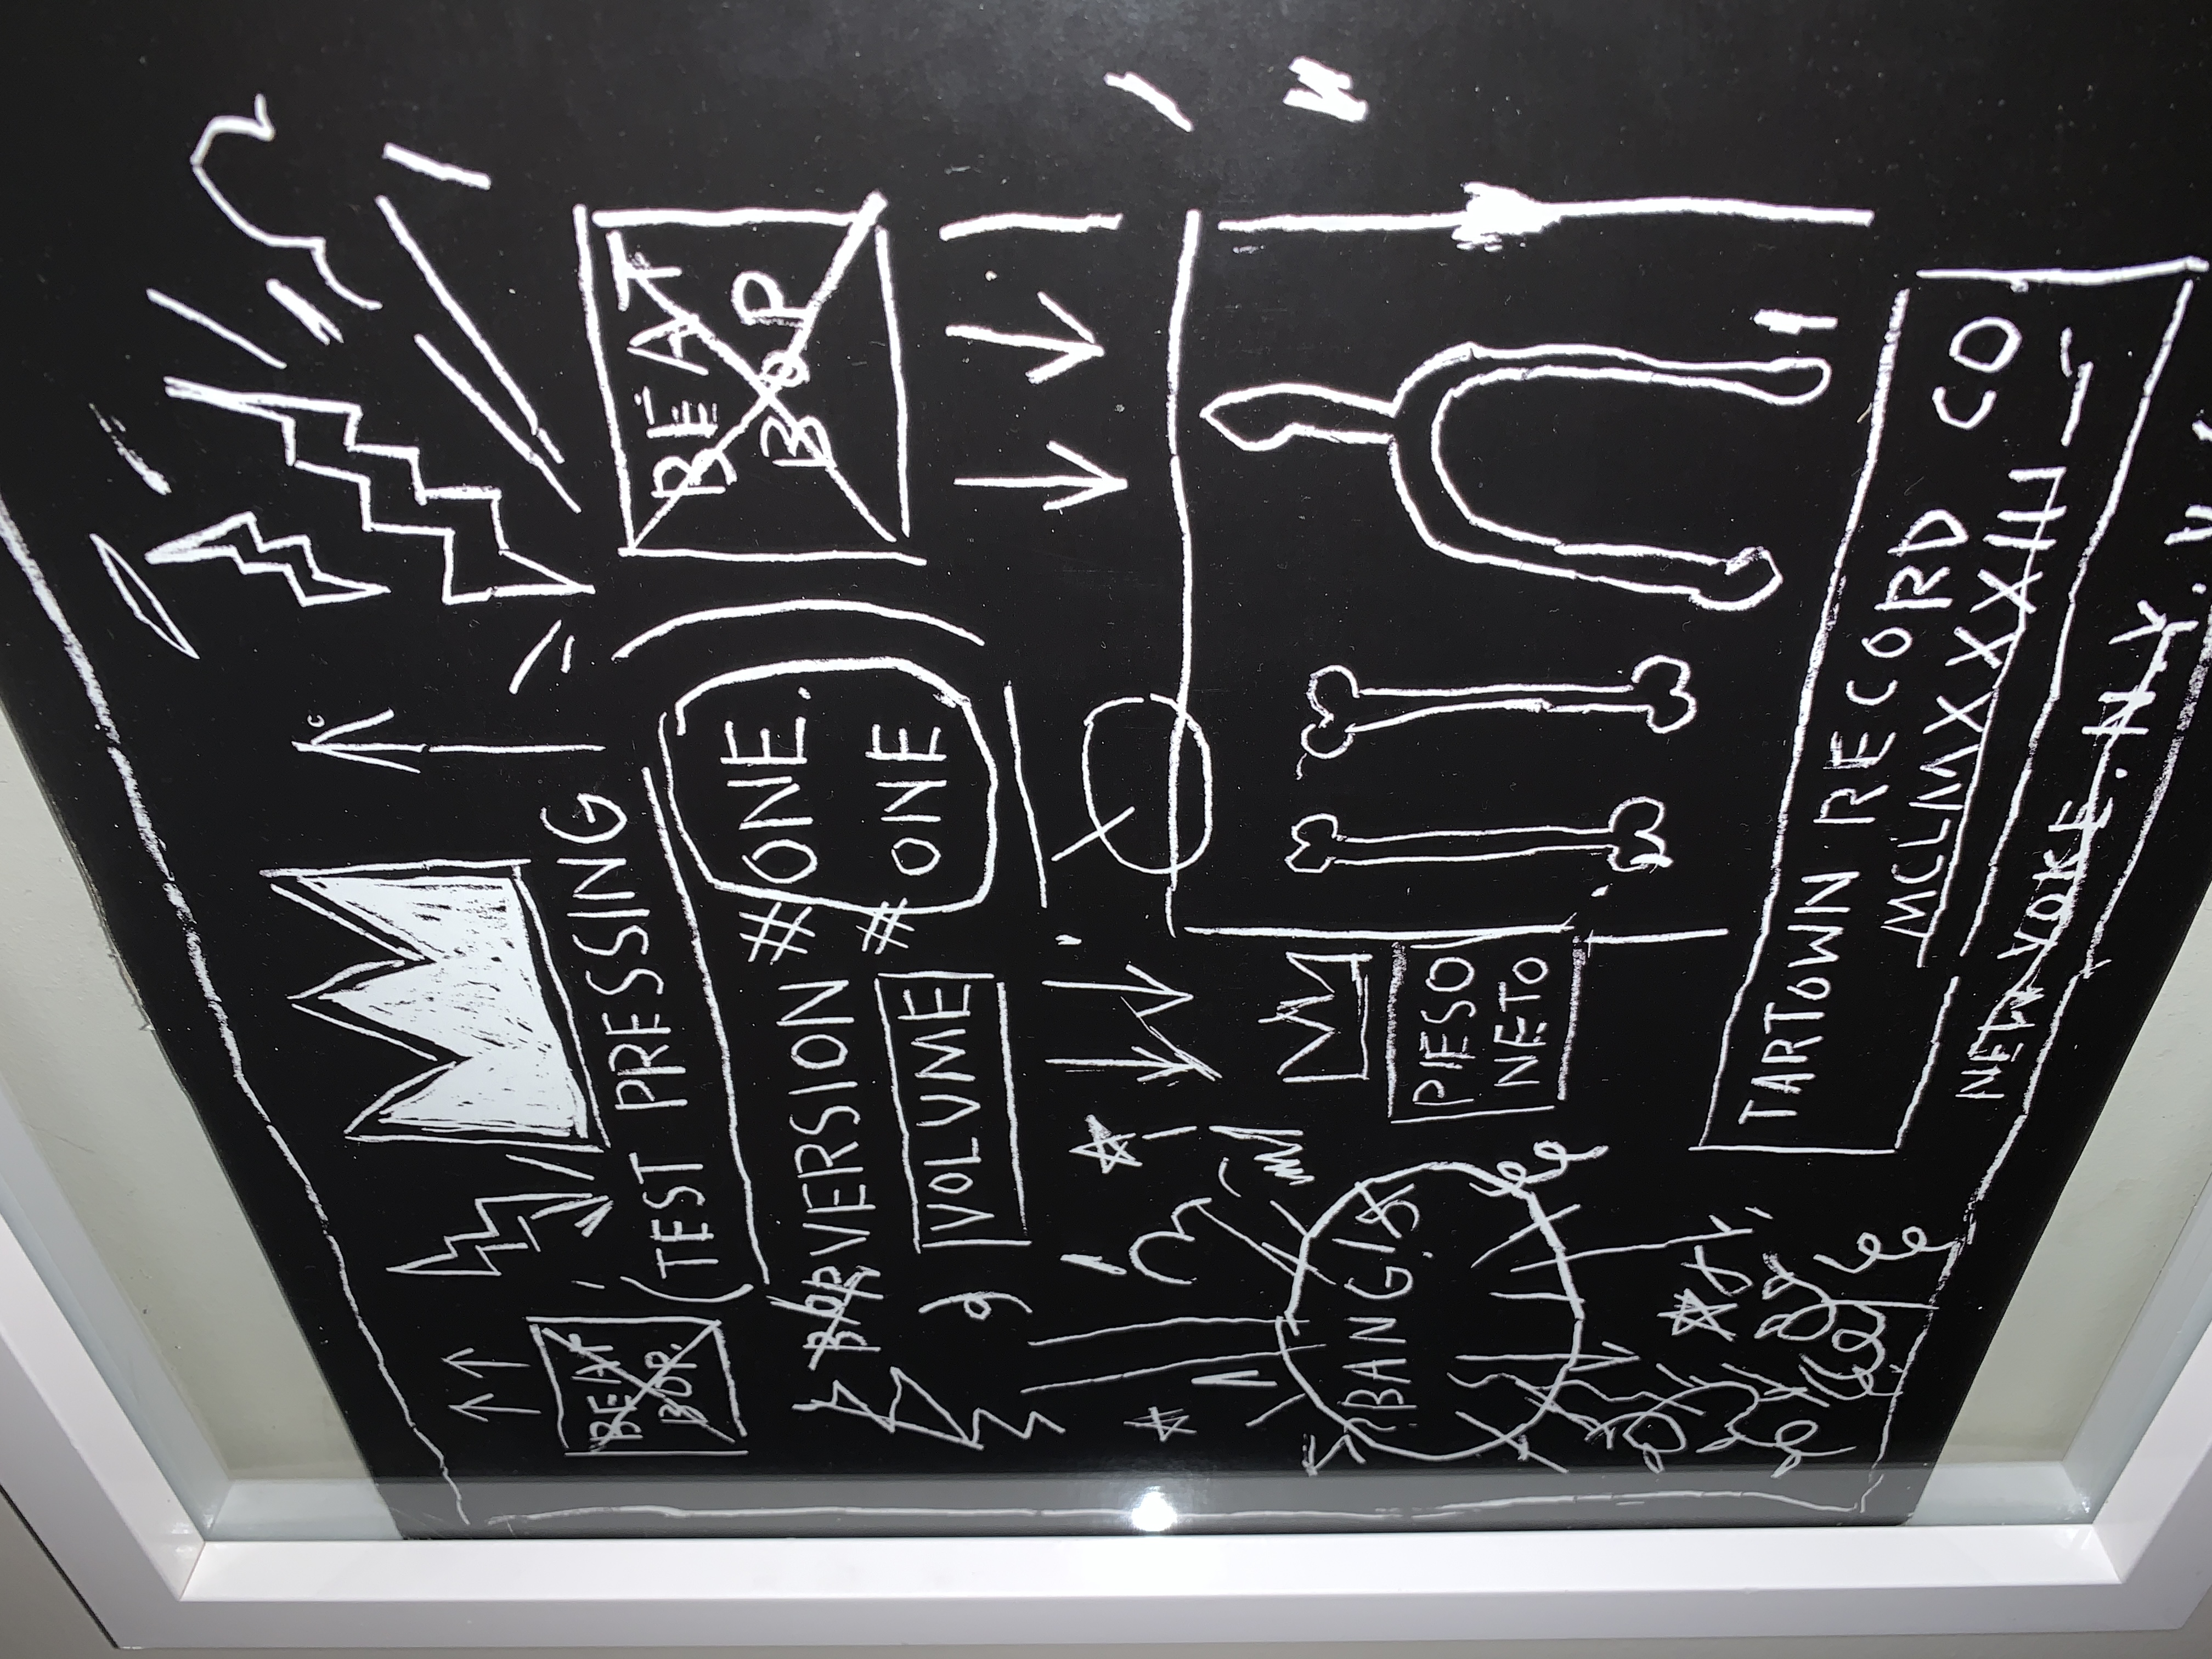 BEAT
BOP.
(TEST PRESSING
BEAT
BOP
BOP VERSION #ONE.
# ONE
VOLVME
PESO
NETO
BANG!
TARTOWN RECORD CO
MCLMXXXIII
NEW YOKE. N.Y.